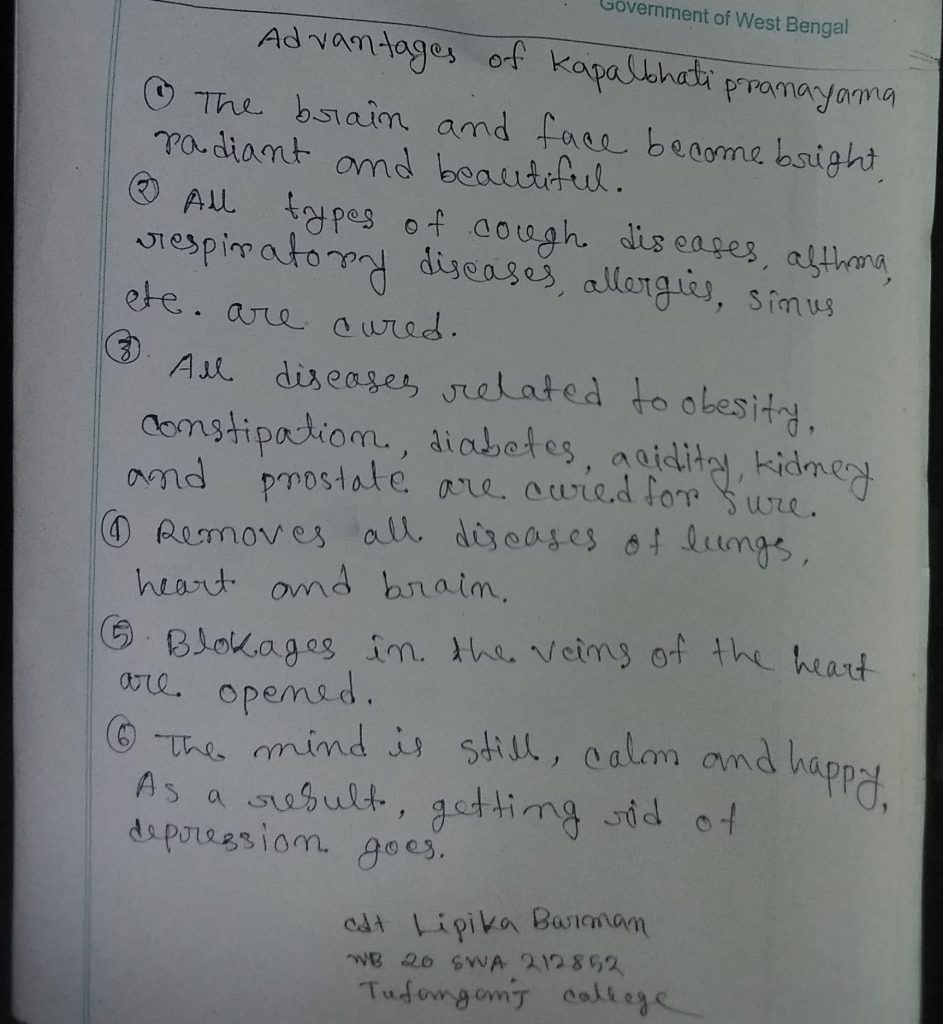 Government of West Bengal
Advantages of Kapalbhati pranayama
① The brain and face become bright,
radiant and beautiful.
② All types of cough diseases, asthma,
respiratory diseases, allergies, sinus
etc. are cured.
③. All diseases related to obesity,
constipation, diabetes, acidity, kidney
and prostate are cured for sure.
④ Removes all diseases of lungs,
heart and brain.
⑤. Blokages in the veins of the heart
are opened.
⑥ The mind is still, calm and happy,
As a result, getting rid of
depression goes.
cdt Lipika Barman
WB 20 SWA 212852
Tufanganj college